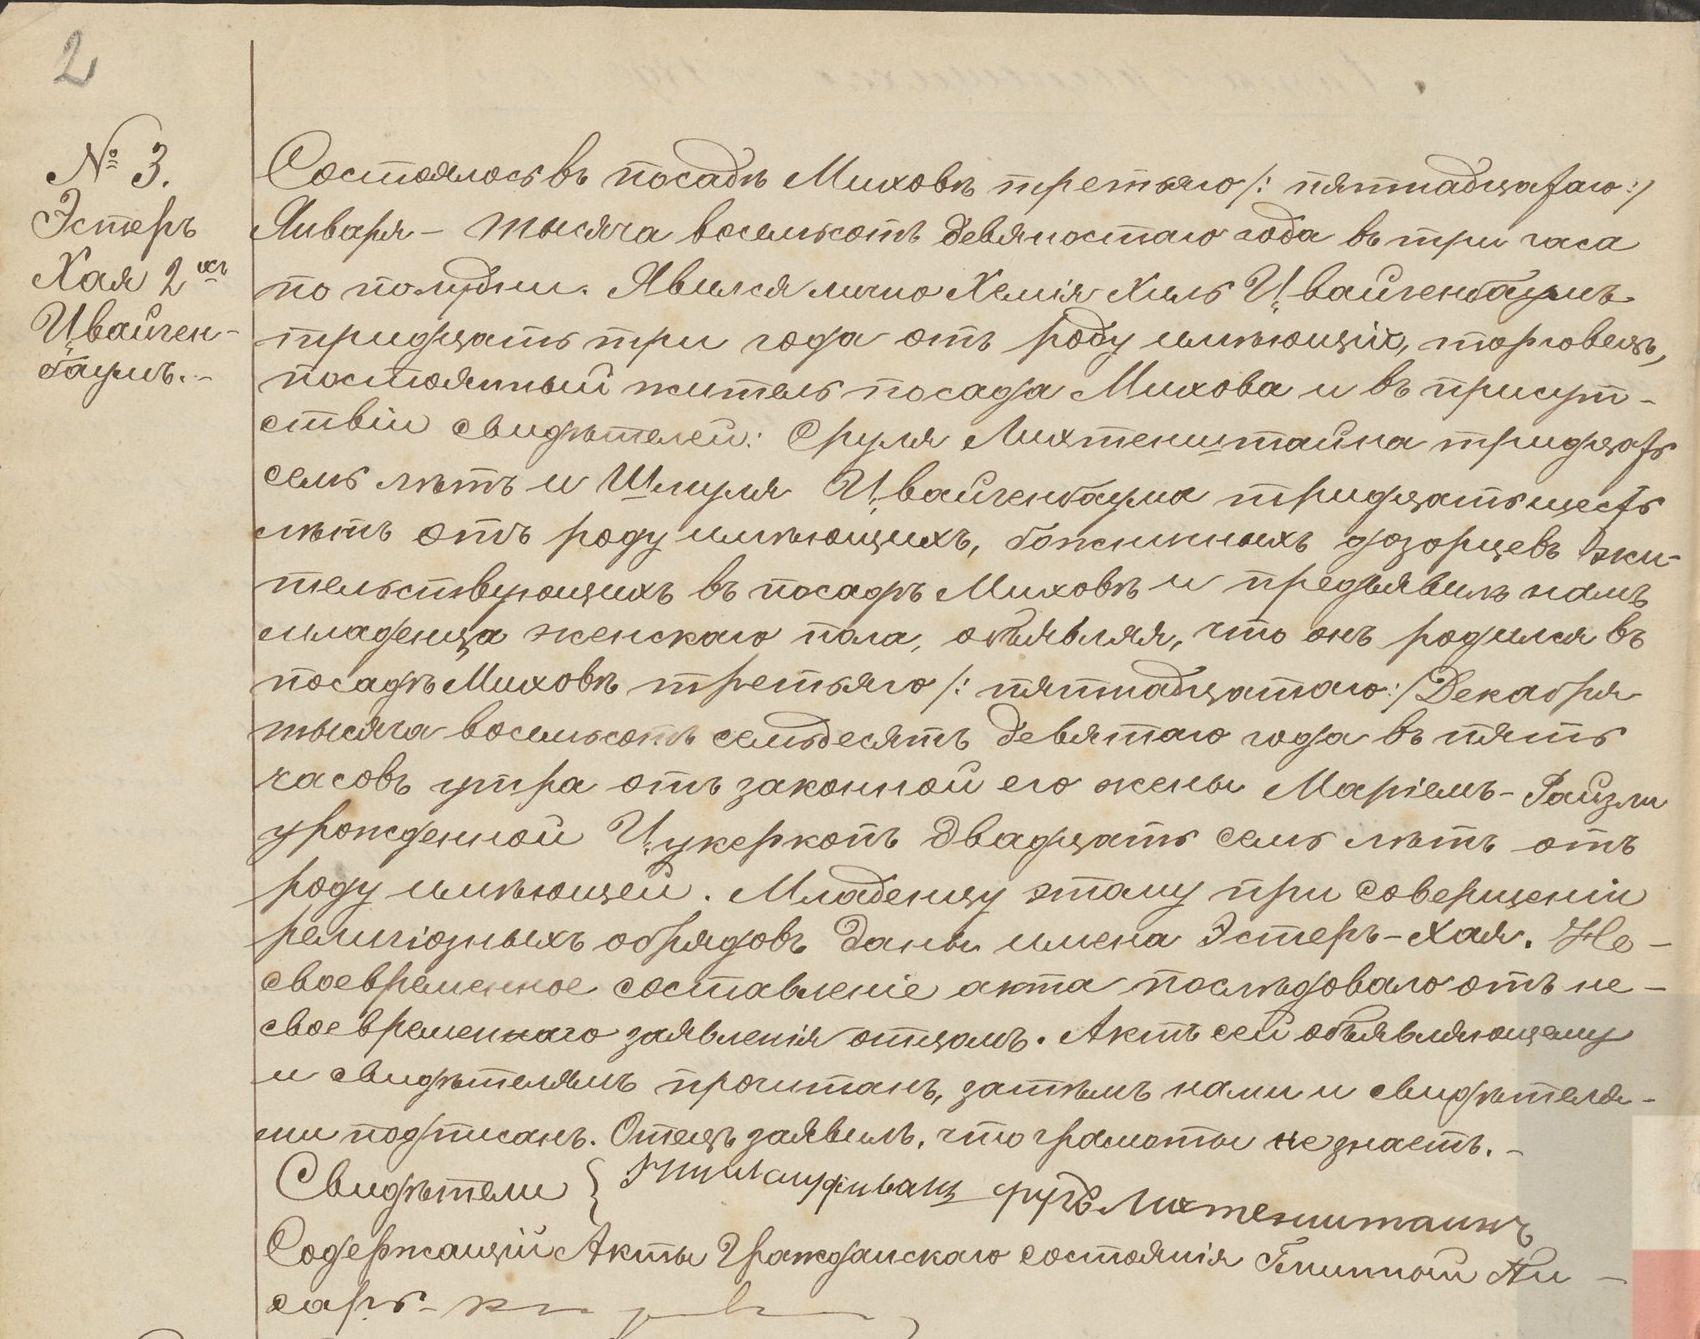 2
№ 3.
Эстеръ
Хая 2 хъ
Цвайген-
баумъ.-
Состоялось въ посадѣ Миховѣ третьяго /: пятнадцатаго :/
Января - тысяча восемьсотъ девяностаго года въ три часа
по полудни. Явился лично Хемія Хиль Цвайгенбаумъ
тридцать три года отъ роду имѣющій, торговецъ,
постоянный житель посада Михова и въ присут-
ствіи свидѣтелей: Сруля Лихтенштайна тридцать
семь лѣтъ и Шмуля Цвайгенбаума тридцать шесть
лѣтъ отъ роду имѣющихъ, божничныхъ дозорцевъ жи-
тельствующихъ въ посадѣ Миховѣ и предъявилъ намъ
младенца женскаго пола, объявляя, что онъ родился въ
посадѣ Миховѣ третьяго /: пятнадцатаго :/ Декабря
тысяча восемьсотъ семьдесятъ девятаго года въ пять
часовъ утра отъ законной его жены Маріемъ-Файзли
урожденной Цукеркопъ двадцать семь лѣтъ отъ
роду имѣющей. Младенцу этому при совершеніи
религіозныхъ обрядовъ даны имена Эстеръ-Хая. Не-
своевременное составленіе акта послѣдовало отъ не-
своевременнаго заявленія отцомъ. Актъ сей объявляющему
и свидѣтелямъ прочитанъ, затѣмъ нами и свидѣтеля-
ми подписанъ. Отецъ заявилъ, что грамоты не знаетъ.-
Свидѣтели { Лихтенштаинъ
Содержащій Акты Гражданскаго состоянія Гминной Пи-
сарь-